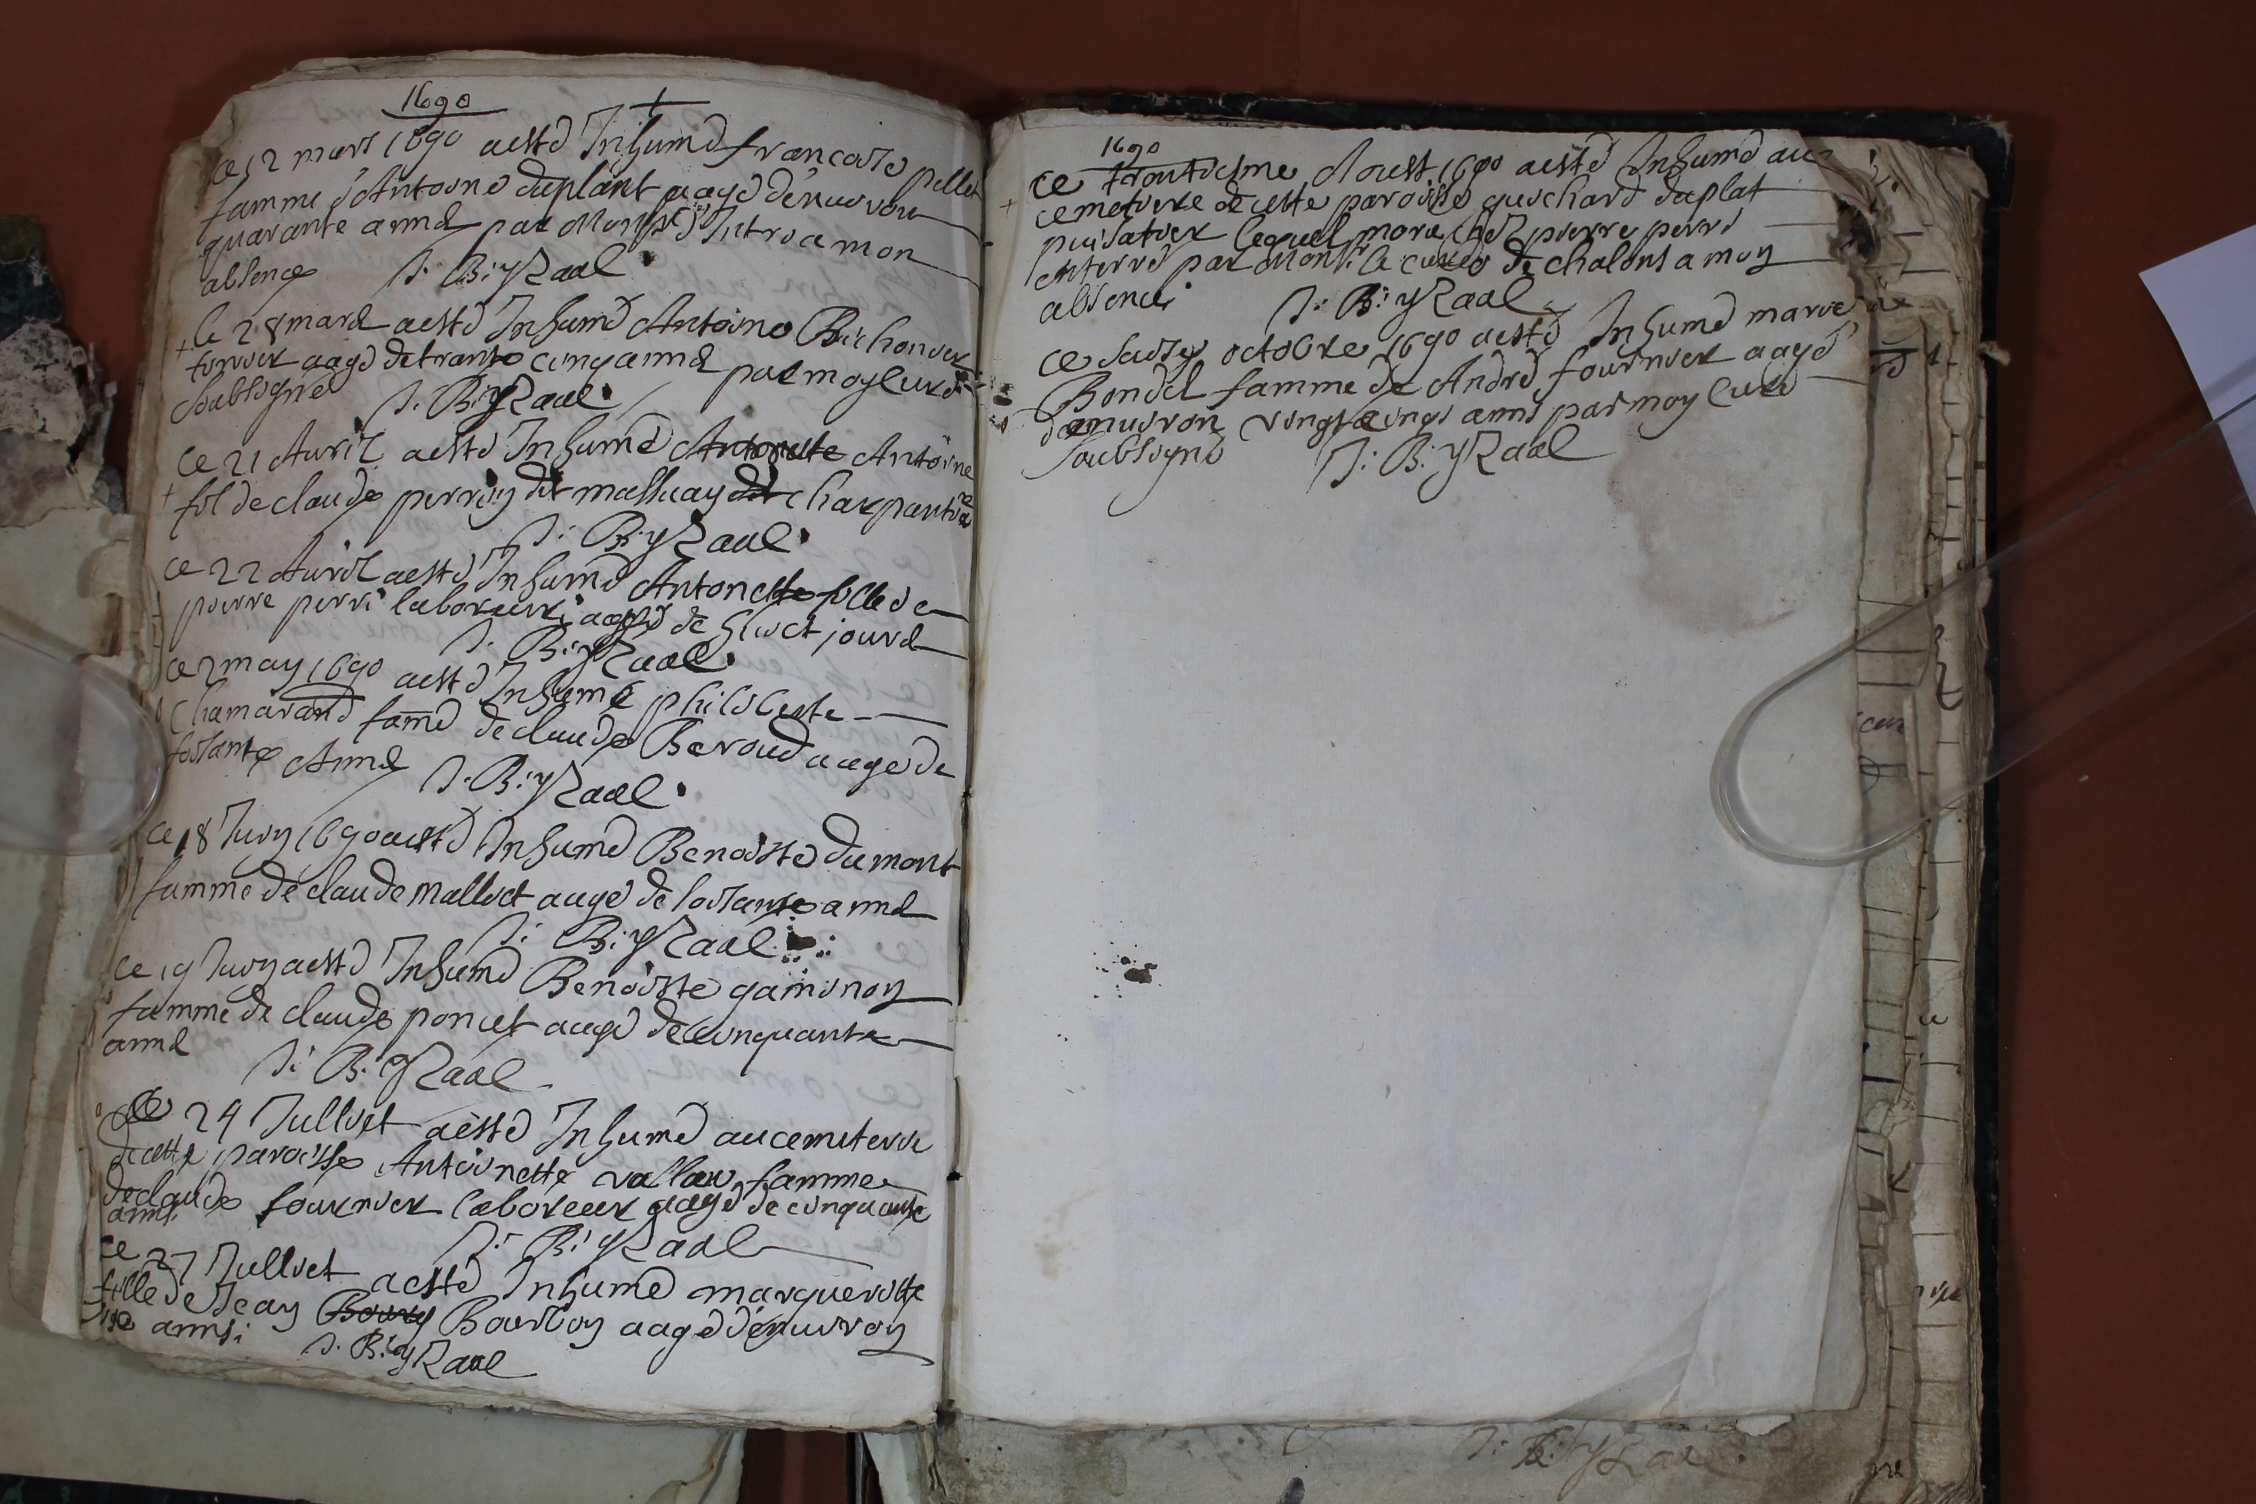 1690
ce 12 mars 1690 a esté Inhumé francoise pillet
famme d'Antoine duplant aagé d'enuiron
quarante annes par Monsr Intro a mon
absence J: B: yRaal
Ce 28 mars a esté Inhumé Antoine Bichonier
aagé de trante cinq annes par moy curé
soubsigné J. B. yRaal
Ce 21 Auril a esté Inhumé Antonette Antoine
fil de claude perroy dit malluay dit charpantier
J: B: yRaal
ce 22 Auril a esté Inhumé Antonette fille de
pierre perri laboreur aagé de huict jours
J. B. yRaal
ce 2 may 1690 a esté Inhumé philiberte
Chamarand famé de claude Beroud aage de
soisante Annes J. B: yRaal
ce 18 Juin 1690 a esté Inhumé Benoiste dumont
famme de claude Malliet aage de soisante annes
J: B: yRaal
ce 19 Juin a esté Inhumé Benoiste gaminon
famme de claude poncet aagé de cinquante
annes J: B. yRaal
Ce 24 Julliet a esté Inhumé au cemeterre
de cette paroisse Antoinette famme
de claude fournier laboreur aagé de cinquante
anns. J: B: yRaal
ce 27 Julliet a esté Inhumé marguerite
fille de Jean Bourg Bourbon aagé d'enuiron
anns: J. B: yRaal
1690
ce trantiesme Aoust 1690 a esté Inhumé au
cemetiere de cette paroisse guichard duplat
puisatier lequel mort chez pierre perri
enterré par Monsr le curé de chalons a mon
absence J: B: yRaal
ce saise octobre 1690 a esté Inhumé marie
Bondel famme de André fournier aagé
d'enuiron vingt cinqs anns par moy curé
soubsigné J: B: yRaal
J: B: yRaal